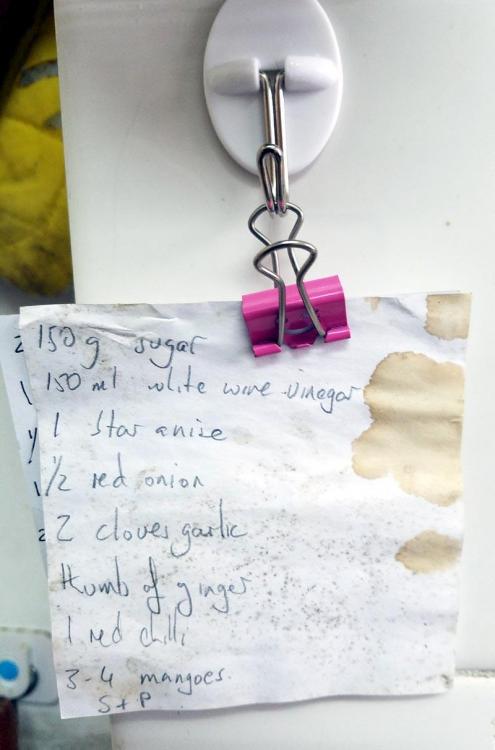 150g sugar
150 ml white wine vinegar
1 Star anise
1/2 red onion
2 cloves garlic
thumb of ginger
1 red chilli
3-4 mangoes.
S+P